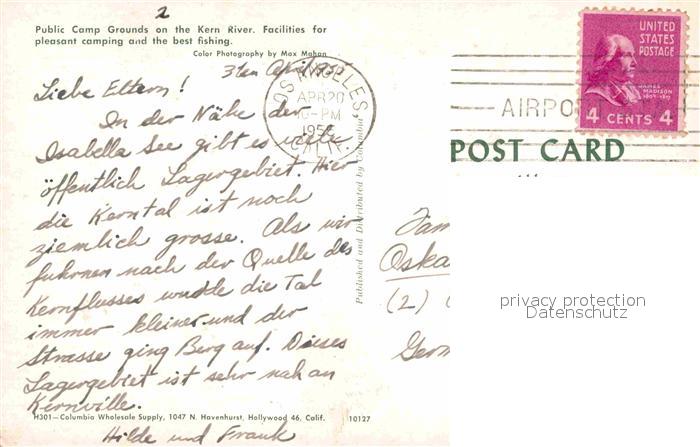 2
Public Camp Grounds on the Kern River. Facilities for
pleasant camping and the best fishing.
Color Photography by Max Mahan
3ten April 1955
Liebe Eltern!
In der Nähe der
Isabella See gibt es viele
öffentlich Lagergebiet. Hier
die Kerntal ist noch
ziemlich grosse. Als wir
fuhrnen nach der Quelle des
Kernflusses wurde die Tal
immer kleiner und der
Strasse ging Berg auf. Dieses
Lagergebiet ist sehr nah an
Kernville.
H301—Columbia Wholesale Supply, 1047 N. Havenhurst, Hollywood 46, Calif. 10127
Hilde und Frank
Published and Distributed by Columbia
LOS ANGELES,
APR 20
PM
195
CALIF.
AIRPO
UNITED
STATES
POSTAGE
JAMES
MADISON
1809-1817
4 CENTS 4
POST CARD
Fam
Oska
(2)
Germ
privacy protection
Datenschutz